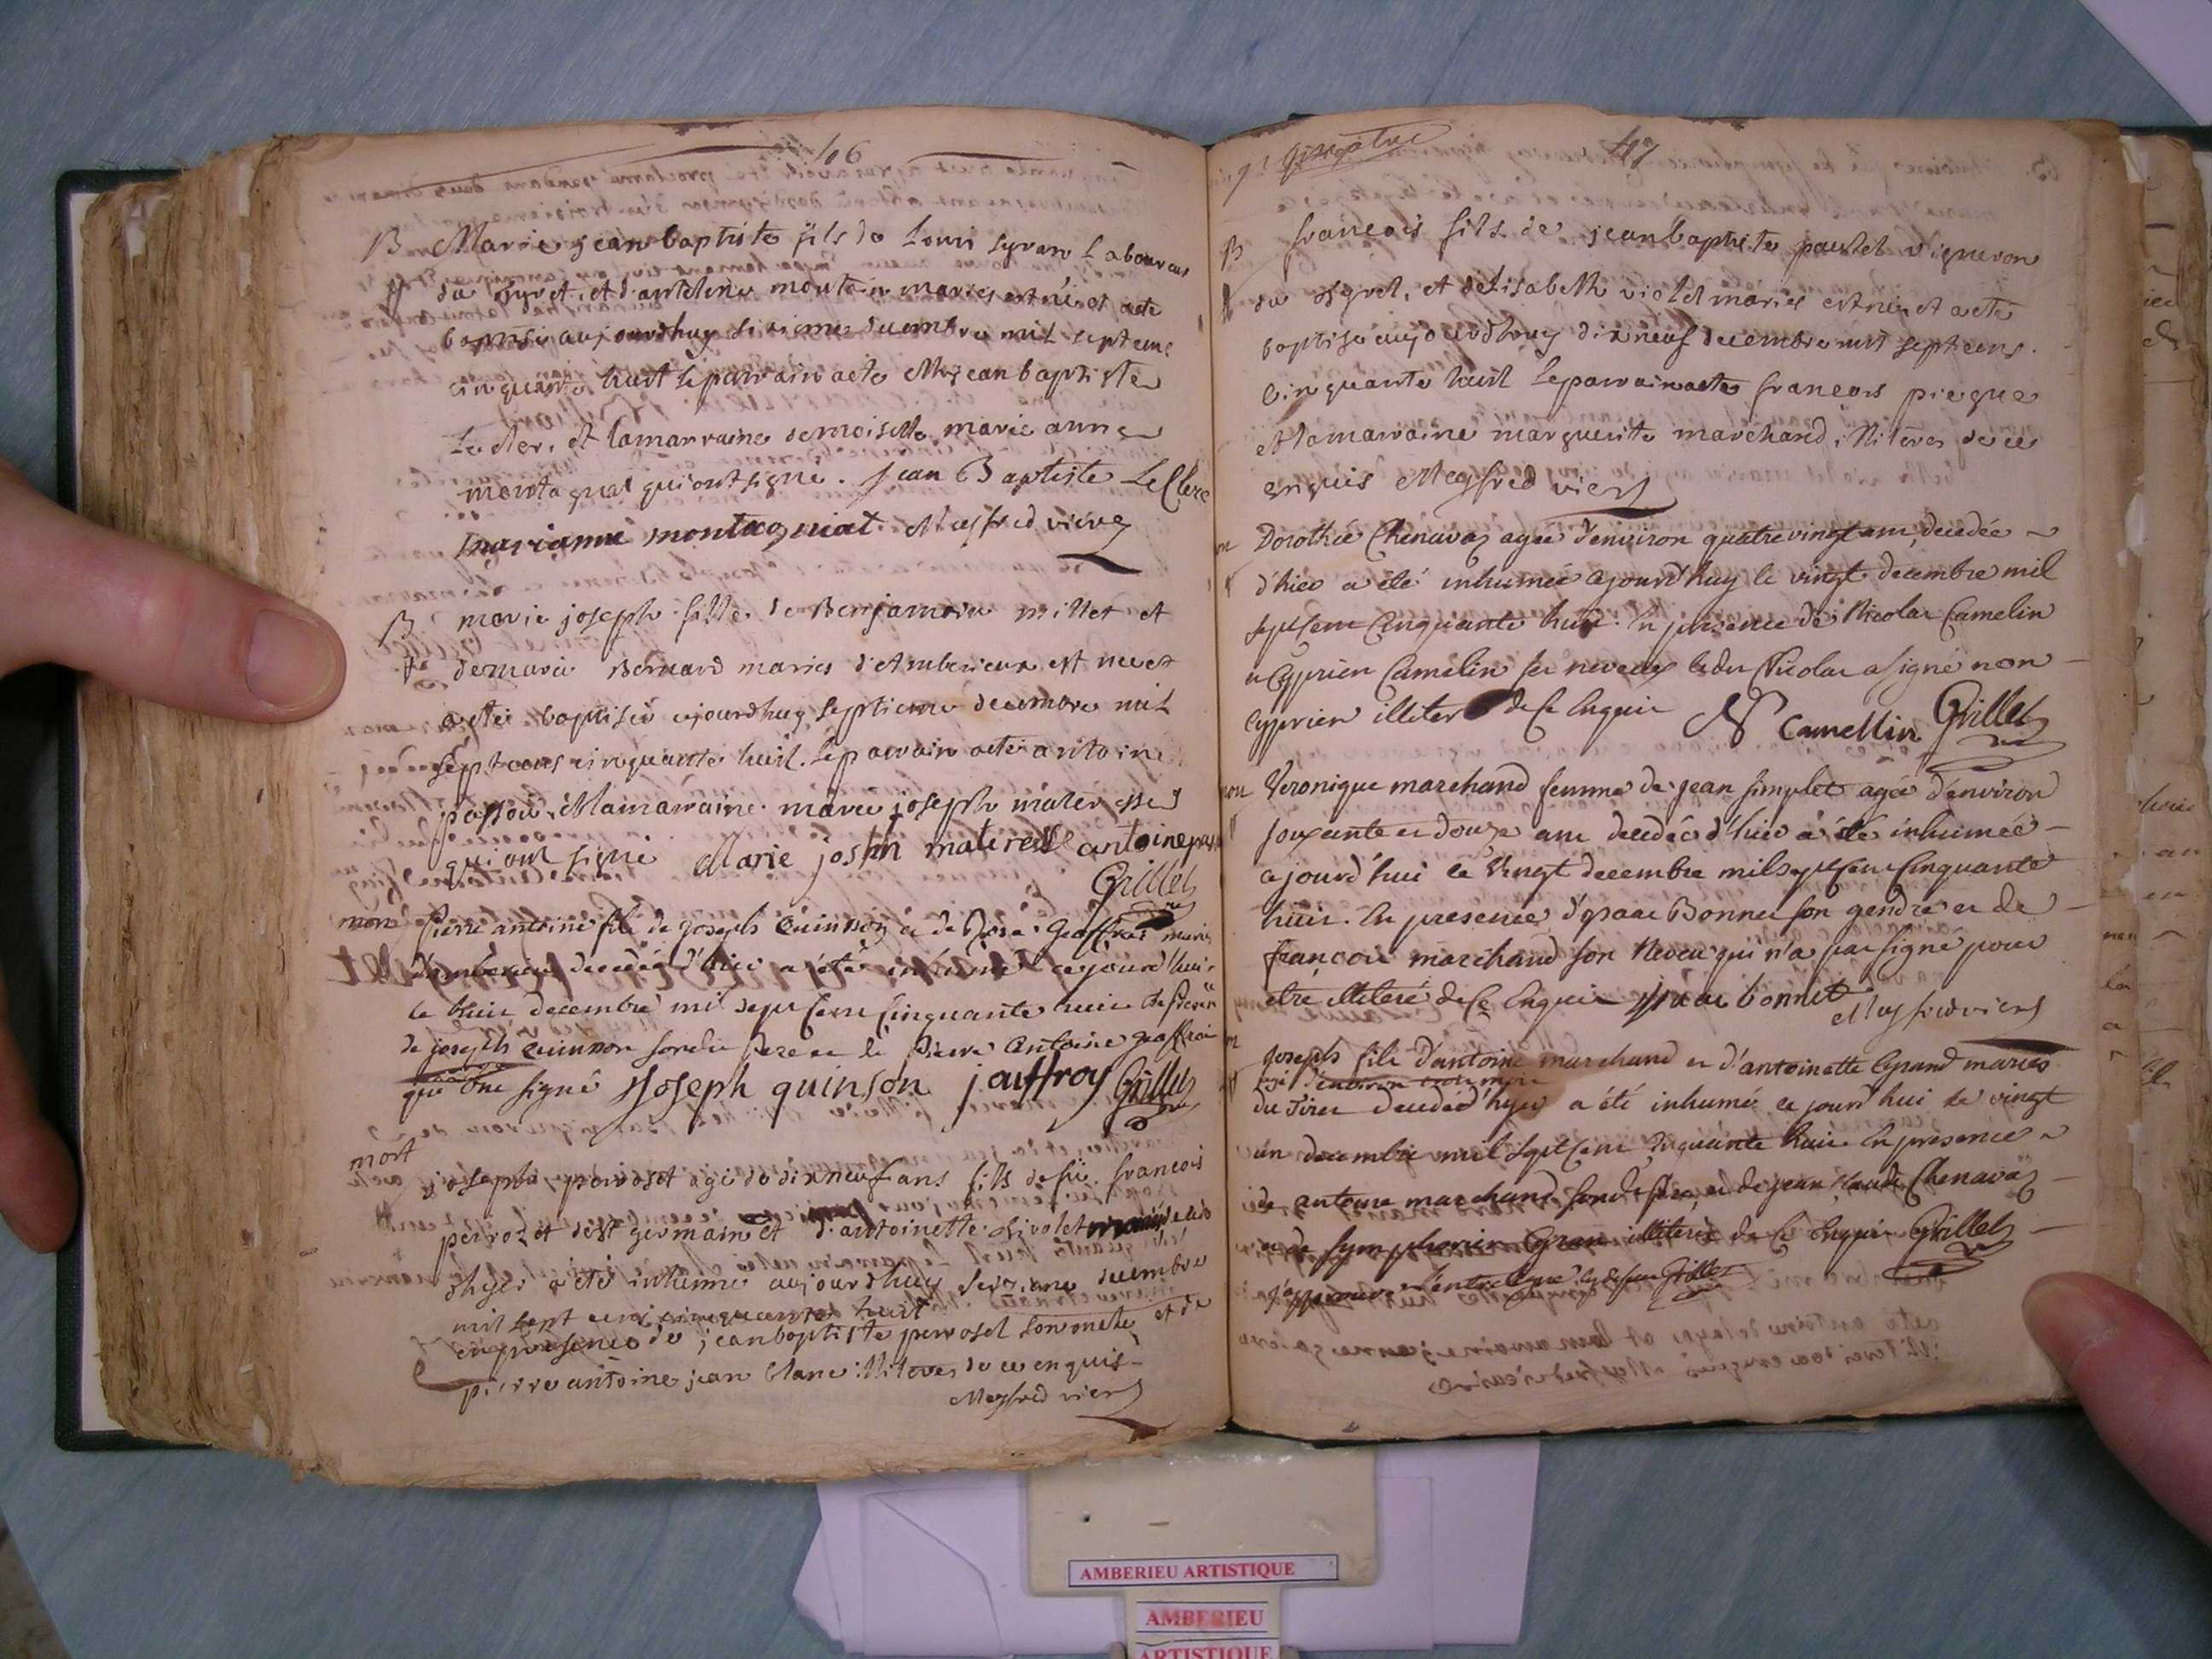 106
B Marie jean baptiste fils de Louis Laboureur
et d'anteline mariés est né et a ete
baptisé aujourdhuy dixieme decembre mil sept cens
cinquante huit le parrain a ete Mr jean baptiste
et la marraine demoiselle marie anne
montagnat qui ont signé. Jean Baptiste LeClerc
marianne montagniat Meyfred vicre
B marie joseph fille de Benjamoin millet et
de marie Bernard mariés d'Amberieux est nee et
a eté baptisée ajourdhuy septieme decembre mil
sept cens cinquante huit. Le parrain a eté antoine
et la marraine marie joseph
qui ont signé Marie josph antoine
Grillet
mort Pierre antoine fils de joseph Quinson et de mariés
d'amberieu decedé d'hier a été inhumé cejourd'hui
le huit decembre mil sept cens cinquante huit
de joseph quinson son dit pere et de Pierre Antoine geoffrai
qui ont signé Joseph quinson jauffroy Grillet
mort
joseph perroset agé de dixneuf ans fils de fü francois
perrozet de st germain et d'antoinette
dhyer a été inhumé aujourdhuy decembre
mil sept cens cinquante huit
en presence de jean baptiste perrosel son oncle et de
pierre antoine jean blanc illiteres de ce enquis
Meyfred vicre
107
B francois fils de jean baptiste paulet vigneron
et delisabeth violet mariés est né et a eté
baptisé aujourdhuy dixneuf decembre mil sept cens
cinquante huit le parrain a ete francois piegue
et la marraine marguerite marchand illiteres de ce
enquis Meyfred vicre
Dorothée Chenavaz agée d'environ quatre vingt ans, decedée
d'hier a été inhumée ajourd'huy le vingt decembre mil
sept cens Cinquante huit. En presence de Nicolas Camelin
et Cyprien Camelin ses neveux le dit Nicolas a signé non
Cyprien illiteré de ce Enquis N Camellin Grillet
Veronique marchand femme de jean simplet agée d'environ
soixante et douze ans decedée d'hier a été inhumée
ajourd'hui le Vingt decembre mil sept cens Cinquante
huit. En presence d'ysaac Bonnet son gendre et de
françois marchand son Neveu qui n'a pas signé pour
etre illiteré de ce Enquis bonnet Meyfred vicre
Joseph fils d'antoine marchand et d'antoinette Grand mariés
agé d'environ
du Tiret decedé d'hyer a été inhumé ce jourd'hui le vingt
un decembre mil sept cens cinquante huit En presence
de antoine marchand son dit pere, et de jean Claude Chenavaz
et de Symphorien Gran illiterés de ce Enquis Grillet
j'approuve Grillet
AMBERIEU ARTISTIQUE
AMBERIEU
ARTISTIQUE